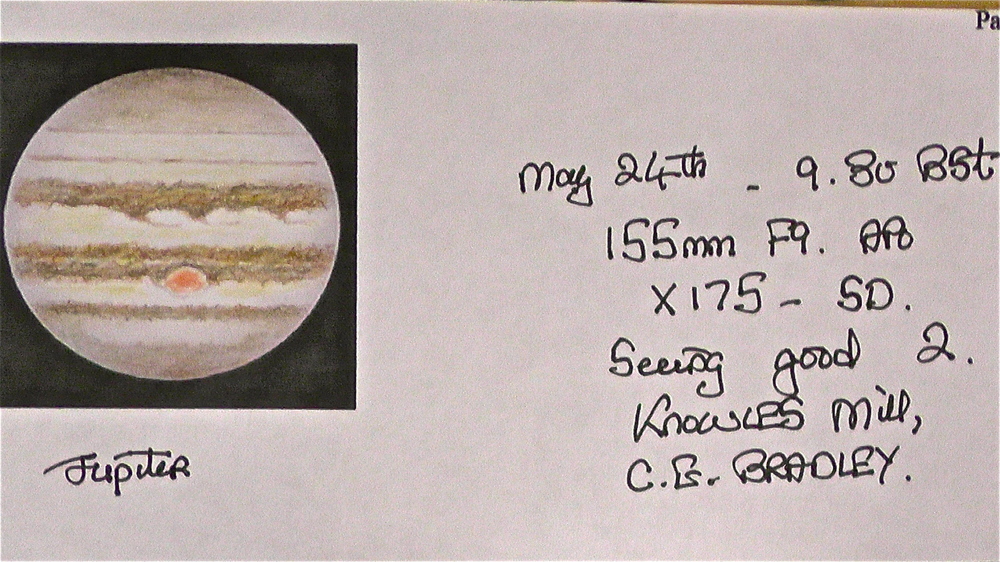 Pa
May 24th - 9.30 BST
155mm F9. APO
X175 - SD.
Seeing good 2.
Knowles Mill,
C.E. BRADLEY.
Jupiter